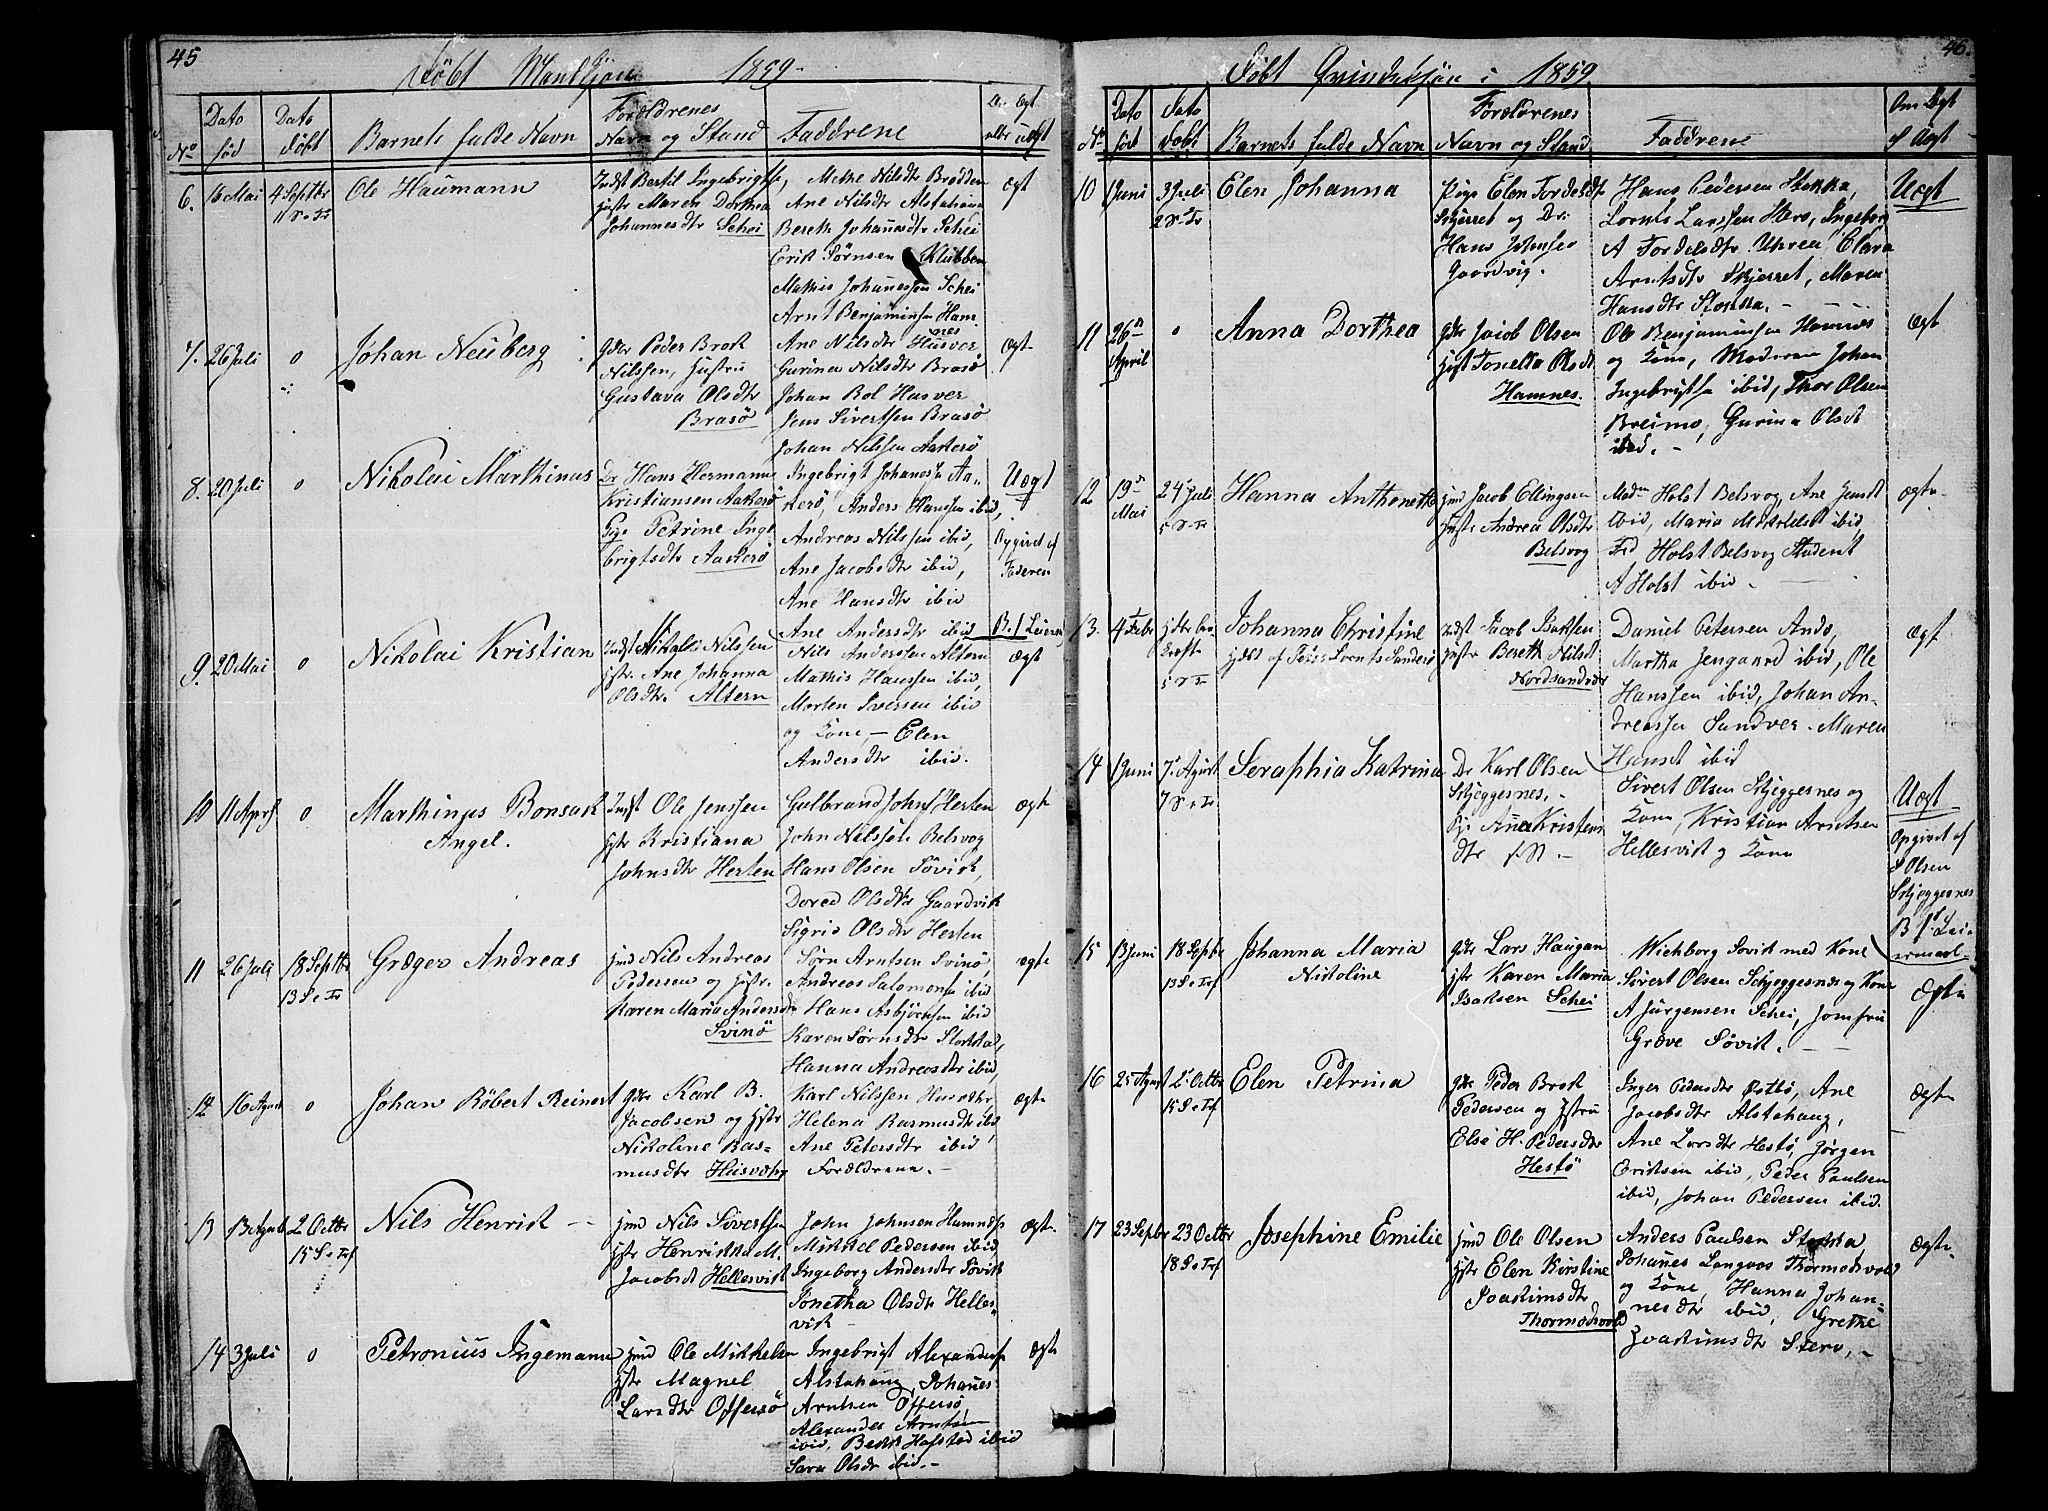 45
Døbt Mandkjøn 1859
No
Dato
fød
Dato
Døbt
Barnets fulde Navn
Forældrenes
Navn og Stand
Faddrene
Ægt
eller uægt
6. 16 Mai 4 Septbr
11 S e Tr
Ole Haumann
Indst Bertil Ingebrigts
Hstr Maren Dorthea
Johannesdtr Schei
Methe Nilsdtr Brodden
Ane Nilsdtr Alstahaug
Bereth Johannesdtr Schei
Erik Sørnsen Klubben
Mathis Johannessen Schei
Arnt Benjaminsen Hamnes
Ægt
7. 26 Juli 0
Johan Neuberg
Gdbr Peder Brok
Nilssen, Hustru
Gustava Olsdtr
Brasø
Ane Nilsdtr Husver
Gurina Nilsdtr Brasø
Johan Rol Husver
Jens Sivertsen Brasø
Johan Nilssen Aakerø
Ægt
8. 20 Juli 0
Nikolai Marthinus
Dr Hans Hermann
Kristiansen Aakerø
Pige Petrine Inge
brigtsdtr Aakerø
Ingebrigt Johanessn Aa-
kerø, Anders Hanssen ibid,
Andreas Nilssen ibid,
Ane Jacobsdtr ibid,
Ane Hansdtr ibid
Ane Andersdtr ibid
Uægt
Opgivet af
Faderen
B. 1 Leierm
9. 20 Mai 0
Nikolai Kristian
Indst Nikolai Nilssen
Hstr. Ane Johanna
Olsdtr. Altern
Nils Anderssen Altern
Mathis Hanssen ibid,
Morten Iversen ibid
og Kone, — Elen
Andersdtr ibid.
Ægt
10 11 April 0
Marthinus Bonsak
Angel.
Indst Ole Jenssen
Hstr Kristiana
Johnsdtr Herten
Gulbrand Johns Herten
John Nilssen Belsvog
Hans Olsen Søvik,
Dored Olsdtr Gaardvik
Sigrid Olsdtr Herten
Ægte
11 26 Juli 18 Septbr
13 S e Tr
Græger Andreas
Jmd Nils Andreas
Pedersen og Hstr.
Karen Maria Andersdtr
Svinø
Sørn Arntsen Svinø,
Andreas Salomons ibid
Hans Asbjörnsen ibid
Karen Sørnsdtr Stokka,
Hanna Andreasdtr ibid,
ægte
12 16 Agust 0
Johan Röbert Reinert
Gdbr Karl B.
Jacobsen og Hstr
Nikoline Ras-
musdtr Husvær
Karl Nilssen Husvær
Helena Rasmusdtr ibid,
Ane Petersdtr ibid
Forældrene. —
Ægte
13 13 Agust 2 Octbr
15 S e Tref
Nils Henrik
Jmd Nils Sivertsen
Hstr Henrikka M.
Jacobsd Hellesvik
John Johnsen Hamnes
Mikkel Pedersen ibid
Ingeborg Andersdtr Søvik
Jonetha Olsdtr Helles-
vik —
ægte
14 3 Juli 0
Petronius Ingemann
Jmd Ole Mikkelsen
Hstr Magnel
Larsdtr Offersø
Ingebrigt Alexanders
Alstahaug, Johanes
Arntsen Offersø
Alexander Arntsen
ibid, Hafstad ibid
Sara Olsdr ibid. —
Ægte
46.
Døbt Qvindekjøn i 1859
No
Dato
født
Dato
Døbt
Barnets fulde Navn
Forældrenes
Navn og Stand
Faddrene
Om Ægt
el Uægt
10 1 Juni 3 Juli
2 S e Tr
Elen Johanna
Pige Elen Tordelsdtr
Skjerret og Dr:
Hans Johnsen
Gaardvig.
Hans Pedersen Stokka,
Lorents Larssen Stero, Ingeborg
A Tordelsdtr Uhrea, Clara
Arntsdtr Skjerret, Maren
Hansdtr Stokka. —
Uægt
11 26de
April 0
Anna Dorthea
Gdbr Jacob Olsen
Hst Tonetta Olsdt
Hamnes.
Ole Benjaminsen Hamnes
og Kone, Johan
Ingebrigtsen ibid, Thor Olsen
Breimo, Gurina Olsdt
ibid. —
Ægt
12 19de
Mai
24de Juli
5 S e Tr
Hanna Anthonette
Jmd Jacob Ellingsen
Hstr Andrea Olsdtr
Belsvog
Madm Holst Belsvog, Ane Jensdt
ibid, Maria ibid,
Frd Holst Belsvog Student
A Holst ibid —
ægte
13. 4 Febr
5 S e Tr
Johanna Christine
Hjdbt af Peder Lorents Sandersø
Indst Jacob Isaksen
Hstr Bereth Nilsd
Nordsandver
Daniel Petersen Andø,
Martha Jengaard ibid, Ole
Hanssen ibid, Johan An-
dreassen Sandver. Maren
Hansdt ibid
Ægt
14 1 Juni 7de Agust
7 S e Tr
Seraphia Katrina
Dr Karl Olsen
Skjeggesnes. -
Pige Ana Kristens
dtr
Sivert Olsen Skjeggesnes og
Kone, Kristian Arntsen
Hellesvik og Kone
Uægt
Opgivet af
S Olsen
Skjeggesnes
B 1st Lei-
ermaal
15 13 Juni 18 Septbr
13 S e Tref
Johanna Maria
Nikoline
Gdbr Lars Haugan
Hstr Karen Maria
Isaksen Schei
Wichborg Søvik med Kone
Sivert Olsen Skjeggesnes og Kone
A Jürgensen Schei, Jomfru
Græve Søvik. —
Ægte
16 25 Agust 2de Octbr
15 S e Tref
Elen Petrina
Gdbr Peder Brok
Pedersen og Hstru
Else H. Pedersdtr
Hestø
Inger Pedersdtr Østbø, Ane
Jacobsdtr Alstahaug,
Ane Larsdtr Hestø, Jørgen
Eriksen ibid, Peder Paulsen
ibid, Johan Pedersen ibid.
Ægte
17 23 Septbr 23 Octbr
18 S e Tref
Josephine Emilie
Jmd Ole Olsen
Hstr Elen Kirstine
Joakimsdtr
Thormodsvold
Anders Paulsen Stokka,
Johanes Langaas Thormodsvold
og Kone, Hanna Johan-
nesdtr ibid, Grethe
Joakimsdtr Stero, —
Ægte